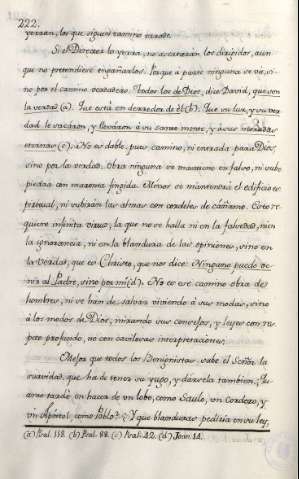 222.
yerran, los que siguen camino errado.
Si el Director la yerra, no acertarán los dirigidos, aun
que no pretendiere engañarlos. Porque à parte ninguna se vá, si
no por el camino verdadero. Todos los de Dios, dice David, que son
la verdad (a). Que está en derredor de él (b). Que su luz, y su ver
dad le sacaron, y llevaron à su santo monte, y à sus
eternas (c). No es doble, pues camino, ni entrada para Dios,
sino por la verdad. Obra ninguna se mantiene en falso, ni sube
piedra con maroma fingida. Menos se mantendrá el edificio es
piritual, ni subirán las almas con cordeles de cáñamo. Esto re
quiere infinita virtud, la que no se halla ni en la falsedad, ni en
la ignorancia, ni en la blandura de las opiniones, sino en
la Verdad, que es Christo, que nos dice: Ninguno puede ve
nir al Padre, sino por mi (d). No es ese camino obra de
hombres, ni se han de salvar viviendo à sus modas, sino
à los modos de Dios, mirando sus consejos, y leyes con res
peto profundo, no con cavilosas interpretaciones.
Mejor que todos los Benignistas, sabe el Señor la
suavidad, que ha de tener su yugo, y dársela tambien. ¿Qu
anto tardó en hacer de un lobo, como Saulo, un Cordero, y
un Apóstol, como Pablo? ¿Y que blanduras pediria en su ley,
(a) Psal. 118. (b) Psal. 88. (c) Psal. 42. (d) Joan. 14.